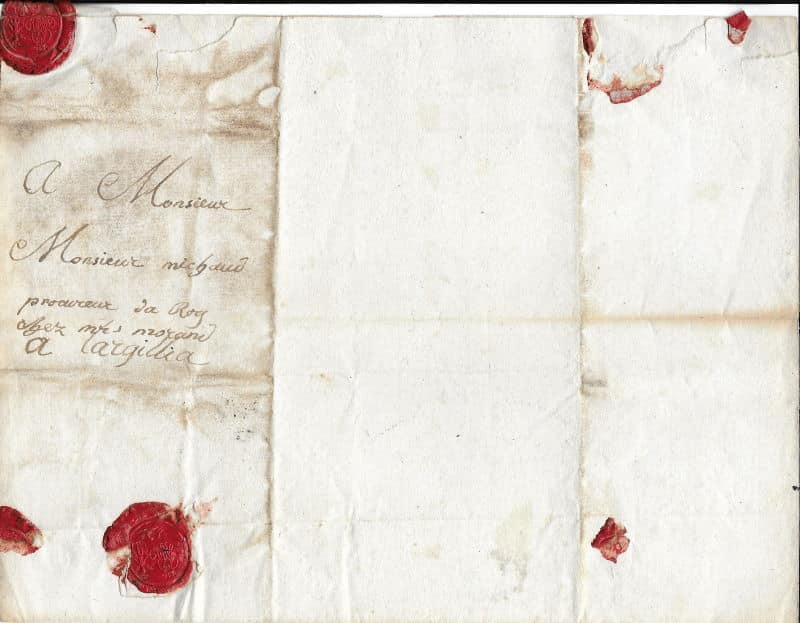 A Monsieur
Monsieur michaud
procureur da Roy
chez mrs morand
A Largillia